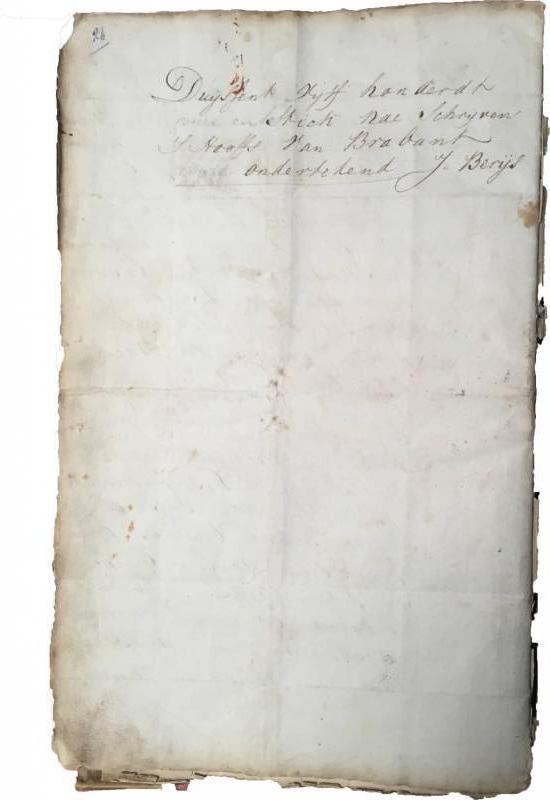 26
Duyssent Vyff honderdt
vier en stich nae Schryven
S Hooffs Van Brabant
onderteekend J. Berijs